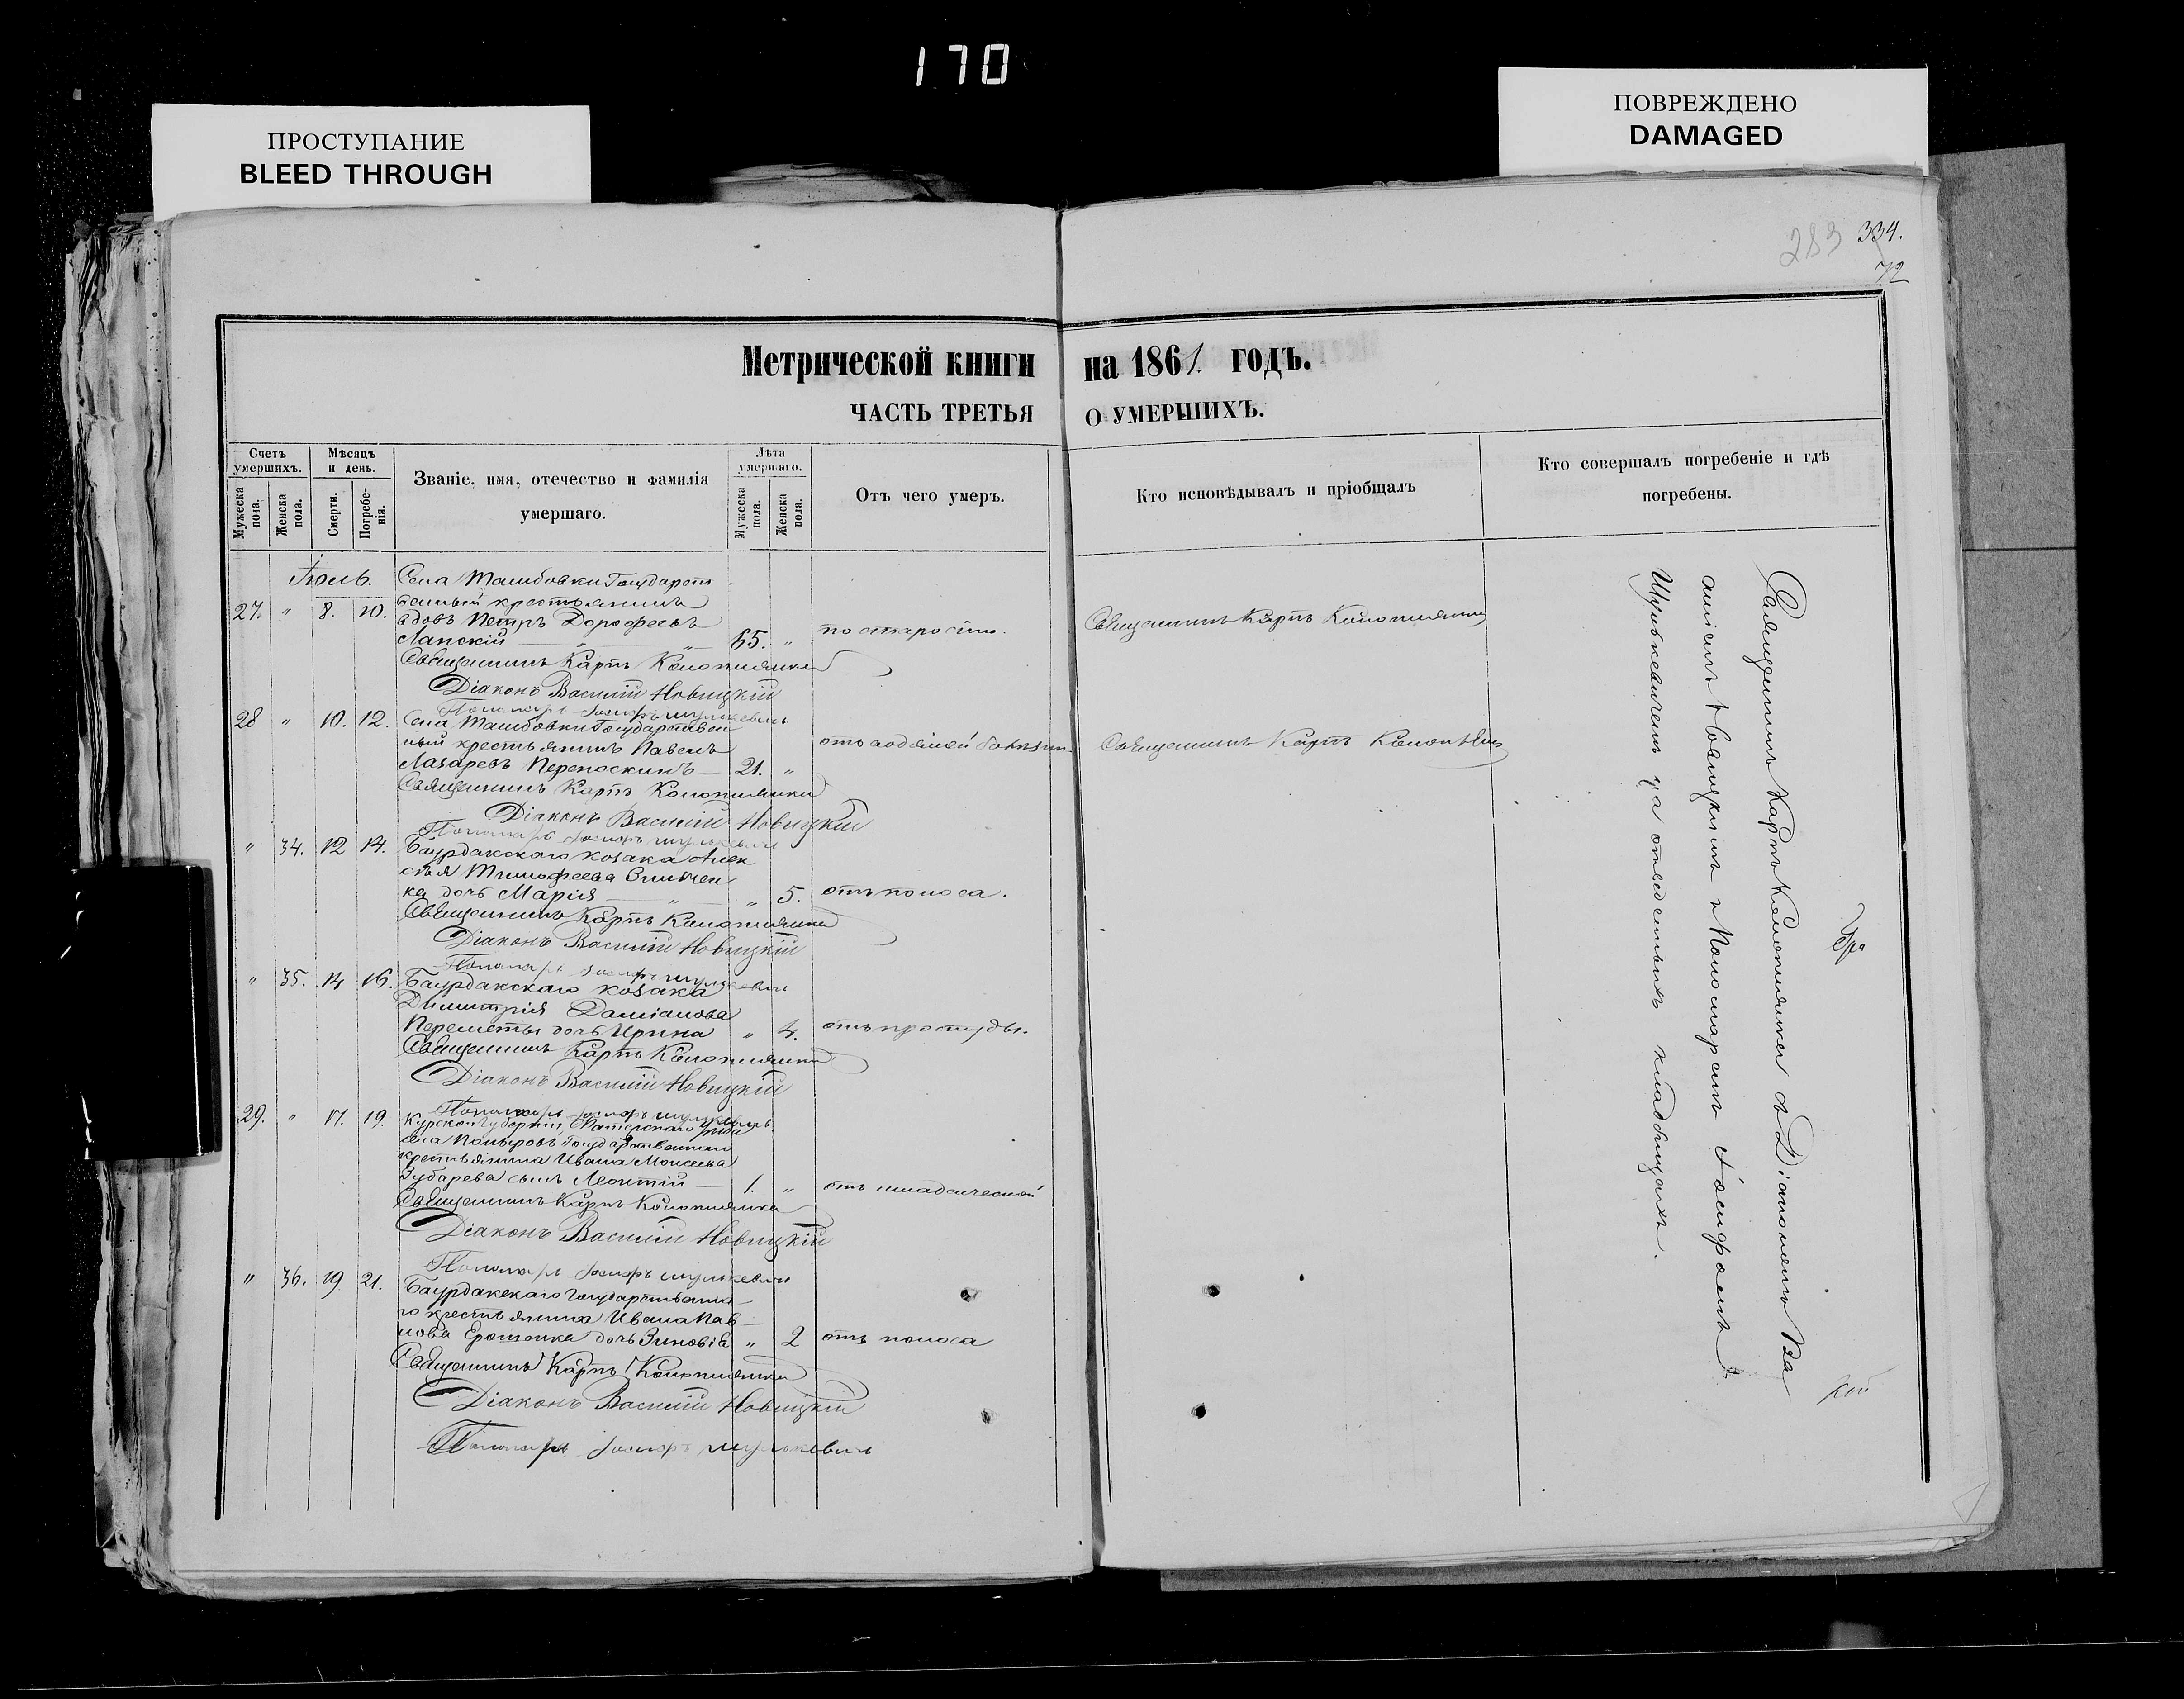 170
ПРОСТУПАНИЕ
BLEED THROUGH
ПОВРЕЖДЕНО
DAMAGED
283 334.
72
Метрической книги на 1861. годъ.
ЧАСТЬ ТРЕТЬЯ О УМЕРШИХЪ.
Счетъ умершихъ.
Мужеска пола.
Женска пола.
Мѣсяцъ и день.
Смерти.
Погребенія.
Званіе, имя, отечество и фамилія
умершаго.
Лѣта умершаго.
Мужеска пола.
Женска пола.
Отъ чего умеръ.
Кто исповѣдывалъ и пріобщалъ
Кто совершалъ погребеніе и гдѣ
погребены.
Іюль.
Села Ташбовки Государст
венный крестьянинъ
27. " 8. 10. вдовъ Петръ Дорофеевъ
Лапскій " 65. " по старости.
Священникъ Карпъ
Священникъ Карпъ
Діаконъ Василій Новицкій
Пономарь Іосифъ
28 " 10. 12. Села Ташбовки Государствен
ный крестьянинъ Павелъ
Лазаревъ Переноскинъ 21. "
Священникъ Карпъ
Священникъ Карпъ
Діаконъ Василій Новицкій
Пономарь Іосифъ
" 34. 12 14. Баурдакского козака Алек
сѣя Тимофеева
ка дочь Марія " " 5. отъ поноса.
Священникъ Карпъ
Діаконъ Василій Новицкій
Пономарь Іосифъ
" 35. 14 16. Баурдакскаго козака
Димитрія Даміанова
Переметы дочь Ирина " 4. отъ простуды.
Священникъ Карпъ
Діаконъ Василій Новицкій
Пономарь Іосифъ
29. " 17. 19. Курской Губерніи,
села Государственнаго
крестьянина Ивана Моисеева
Зубарева сынъ Леонтій 1. " отъ младенческой
Священникъ Карпъ
Діаконъ Василій Новицкій
Пономарь Іосифъ
" 36. 19. 21. Баурдакскаго Государственна
го крестьянина Ивана Пав
лова Ерошенка дочь Зиновія " 2 отъ поноса
Священникъ Карпъ
Діаконъ Василій Новицкій
Пономарь Іосифъ
Священникъ Карпъ съ Діакономъ Ва
и Пономаремъ Іосифомъ
на отведенныхъ кладбищахъ.